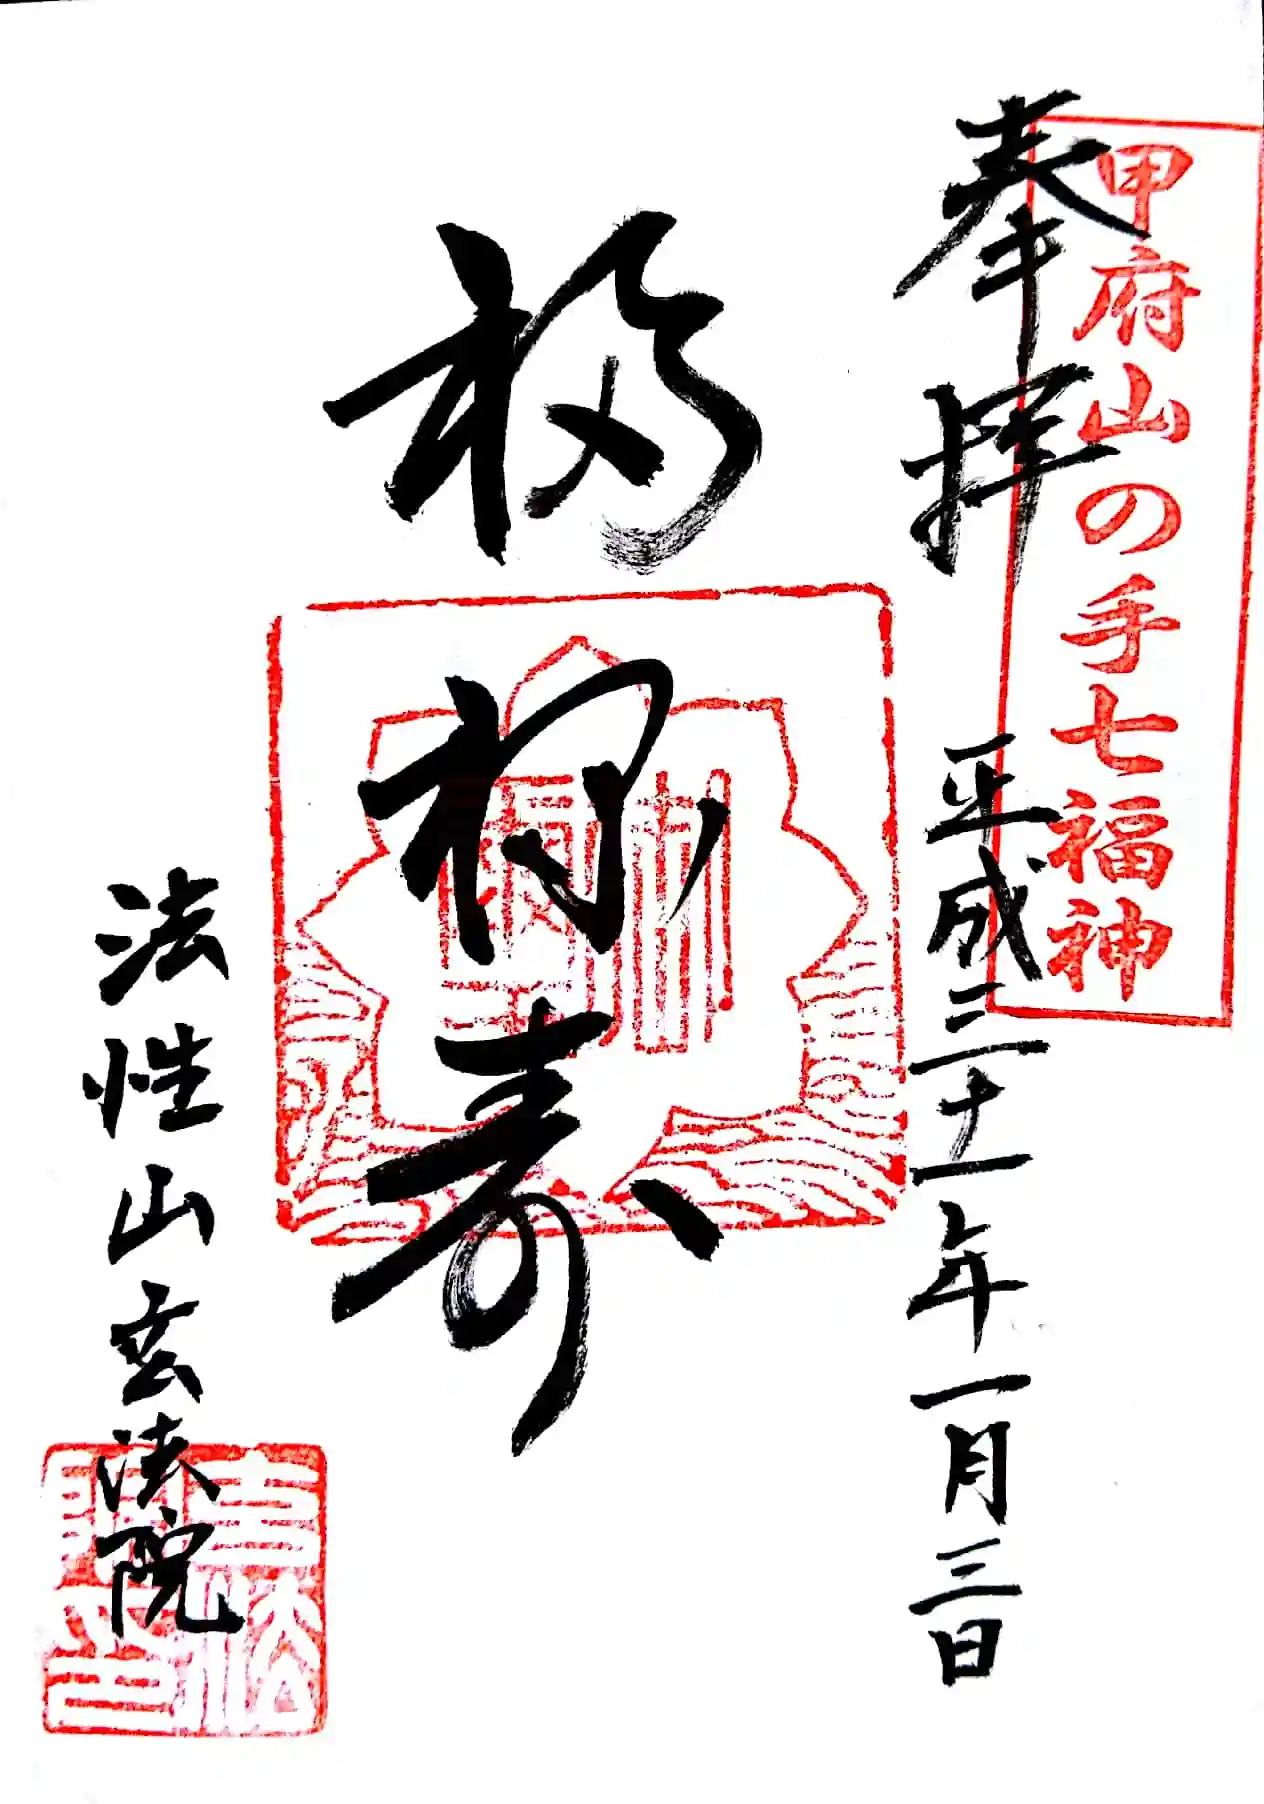 甲府山の手七福神
奉拝 平成三十一年一月三日
福禄寿
法性山玄法院
玄法院印